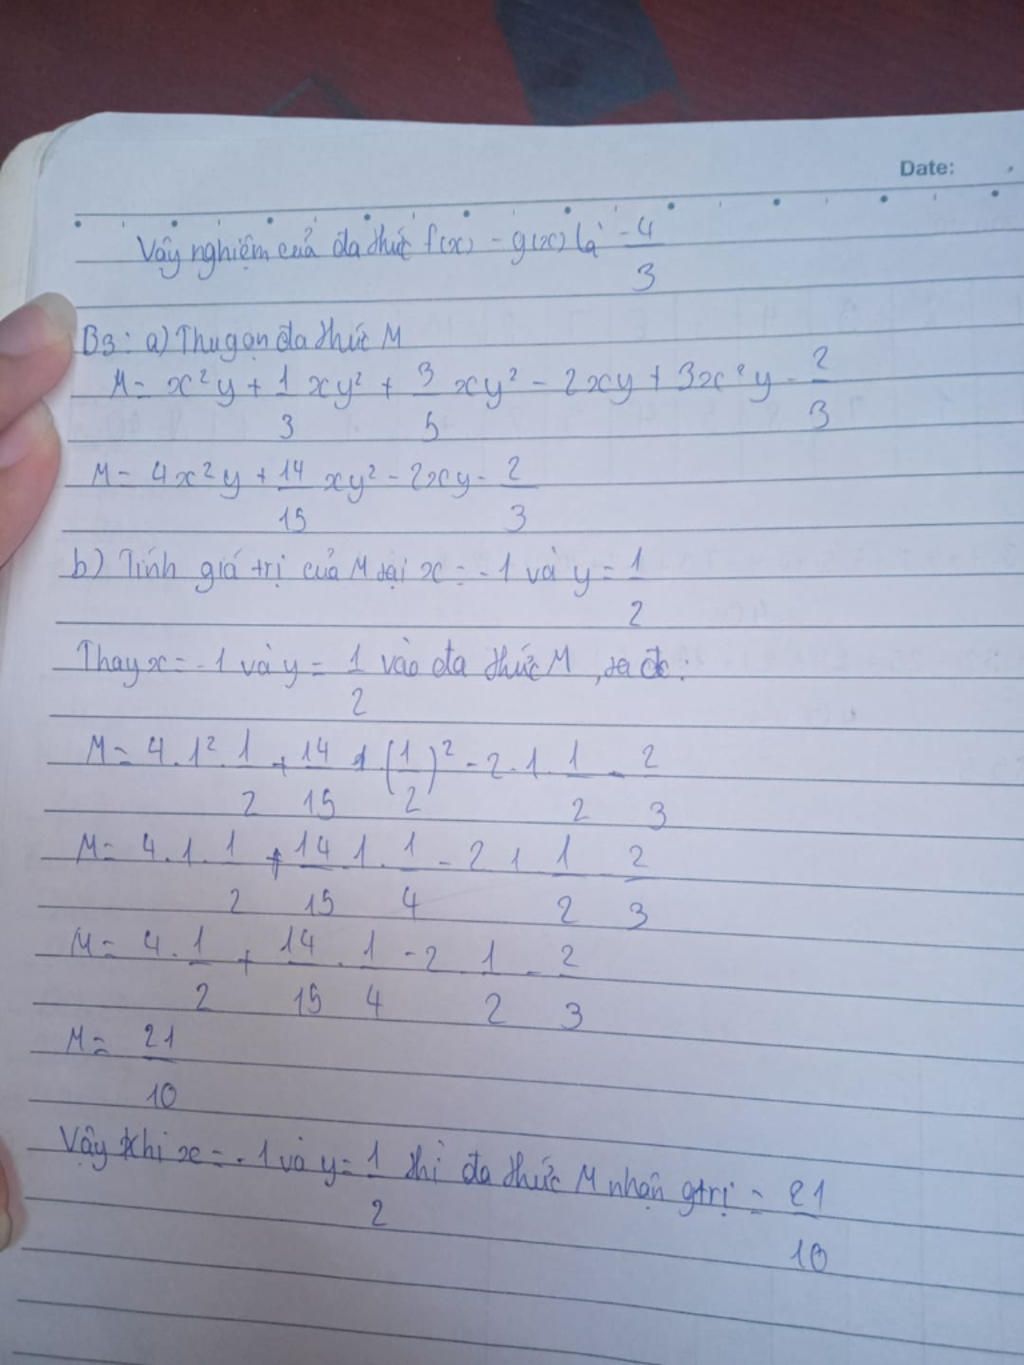 Date:
Vậy nghiệm của đa thức f(x) - g(x) là -4/3
B3: a) Thu gọn đa thức M
M = x²y + 1/3 xy² + 3/5 xy² - 2xy + 3x²y - 2/3
M = 4x²y + 14/15 xy² - 2xy - 2/3
b) Tính giá trị của M tại x = -1 và y = 1/2
Thay x = -1 và y = 1/2 vào đa thức M, ta đc:
M = 4.1². 1/2 + 14/15 1.(1/2)² - 2.1. 1/2 - 2/3
M = 4.1. 1/2 + 14/15 1. 1/4 - 2 1 1/2 - 2/3
M = 4. 1/2 + 14/15 . 1/4 - 2 1/2 - 2/3
M = 21/10
Vậy khi x = -1 và y = 1/2 thì đa thức M nhận gtrị = 21/10